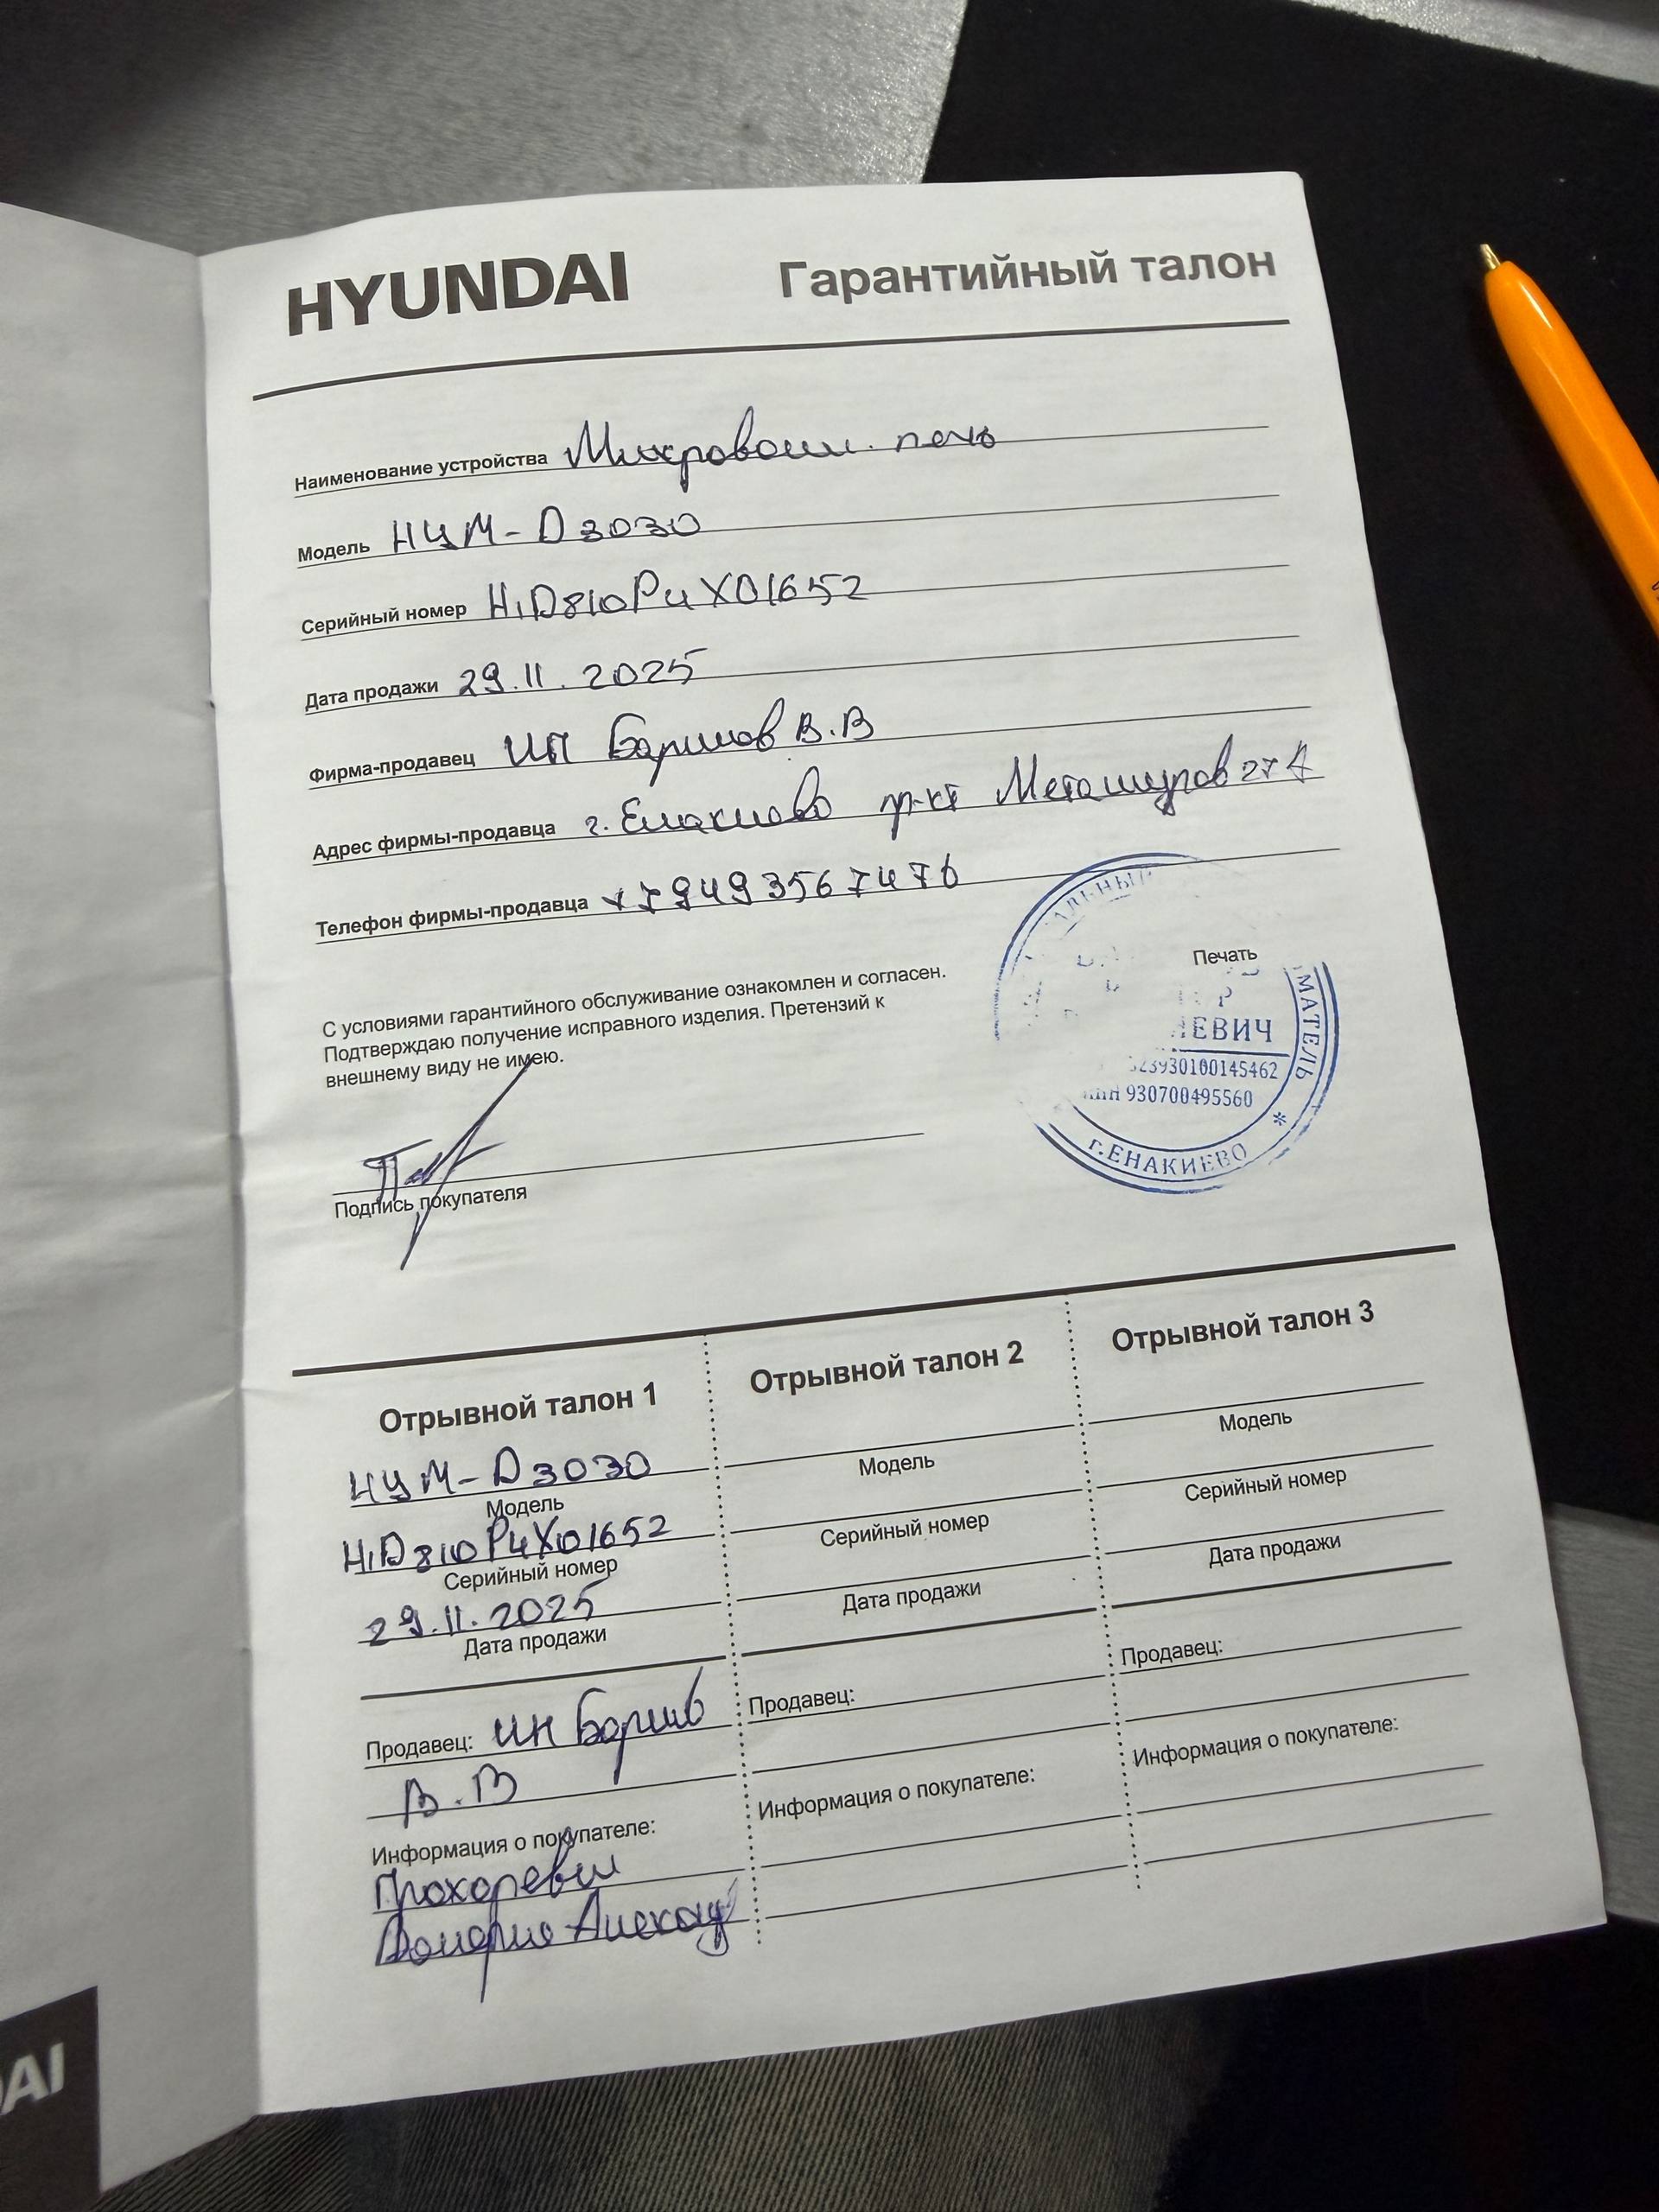 HYUNDAI Гарантийный талон
Наименование устройства Микроволн. печь
Модель HYM-D3030
Серийный номер H1D810P4X01652
Дата продажи 29.11.2025
Фирма-продавец ИП В.В
Адрес фирмы-продавца г. Енакиево пр-кт Металлургов 27А
Телефон фирмы-продавца +79493567476
Печать
С условиями гарантийного обслуживание ознакомлен и согласен.
Подтверждаю получение исправного изделия. Претензий к
внешнему виду не имею.
ЕВИЧ
930100145462
ИНН 930700495560
г.ЕНАКИЕВО
Подпись покупателя
Отрывной талон 1
HYM-D3030
Модель
H1D810P4X01652
Серийный номер
29.11.2025
Дата продажи
Продавец: ИП
В.В
Информация о покупателе:
Отрывной талон 2
Модель
Серийный номер
Дата продажи
Продавец:
Информация о покупателе:
Отрывной талон 3
Модель
Серийный номер
Дата продажи
Продавец:
Информация о покупателе:
DAI